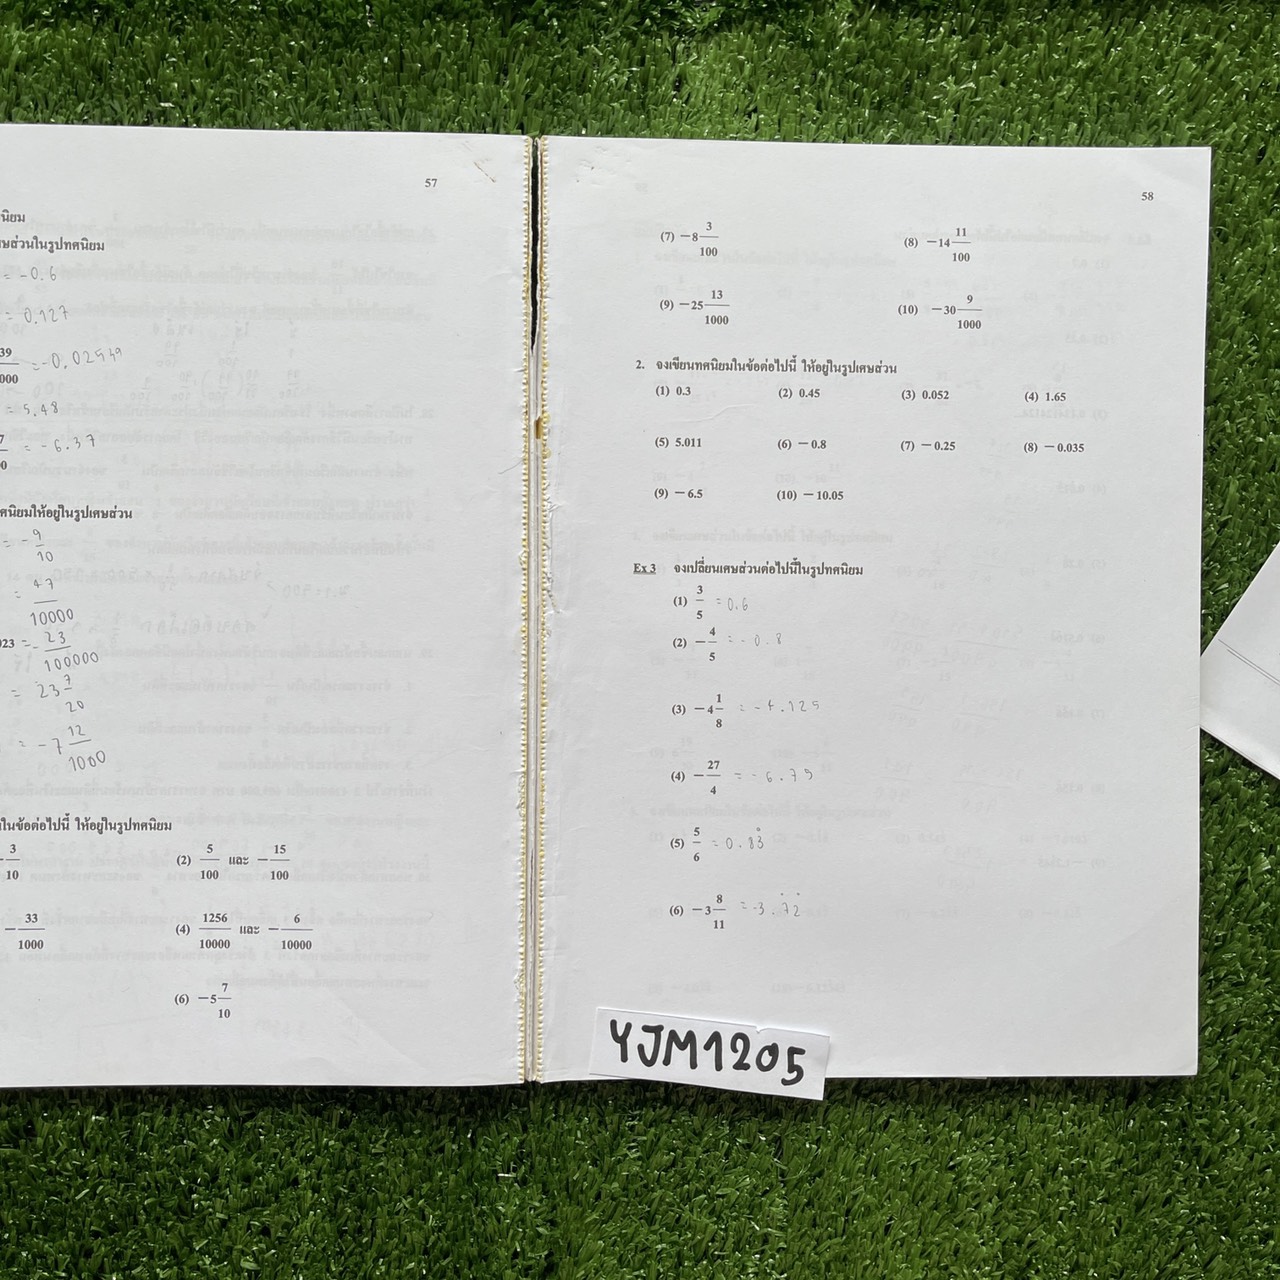 57
นิยม
ศษส่วนในรูปทศนิยม
= -0.6
= 0.127
39/000 = -0.02539
= 5.48
7/0 = -6.37
ศนิยมให้อยู่ในรูปเศษส่วน
= -9/10
= 47/10000
023 = -23/100000
= 23 7/20
= -7 12/1000
ในข้อต่อไปนี้ ให้อยู่ในรูปทศนิยม
-3/10
(2) 5/100 และ -15/100
-33/1000
(4) 1256/10000 และ -6/10000
(6) -5 7/10
58
(7) -8 3/100
(8) -14 11/100
(9) -25 13/1000
(10) -30 9/1000
2. จงเขียนทศนิยมในข้อต่อไปนี้ ให้อยู่ในรูปเศษส่วน
(1) 0.3 (2) 0.45 (3) 0.052 (4) 1.65
(5) 5.011 (6) -0.8 (7) -0.25 (8) -0.035
(9) -6.5 (10) -10.05
Ex 3 จงเปลี่ยนเศษส่วนต่อไปนี้ในรูปทศนิยม
(1) 3/5 = 0.6
(2) -4/5 = -0.8
(3) -4 1/8 = -4.125
(4) -27/4 = -6.75
(5) 5/6 = 0.83̇
(6) -3 8/11 = -3.7̇2̇
YJM1205